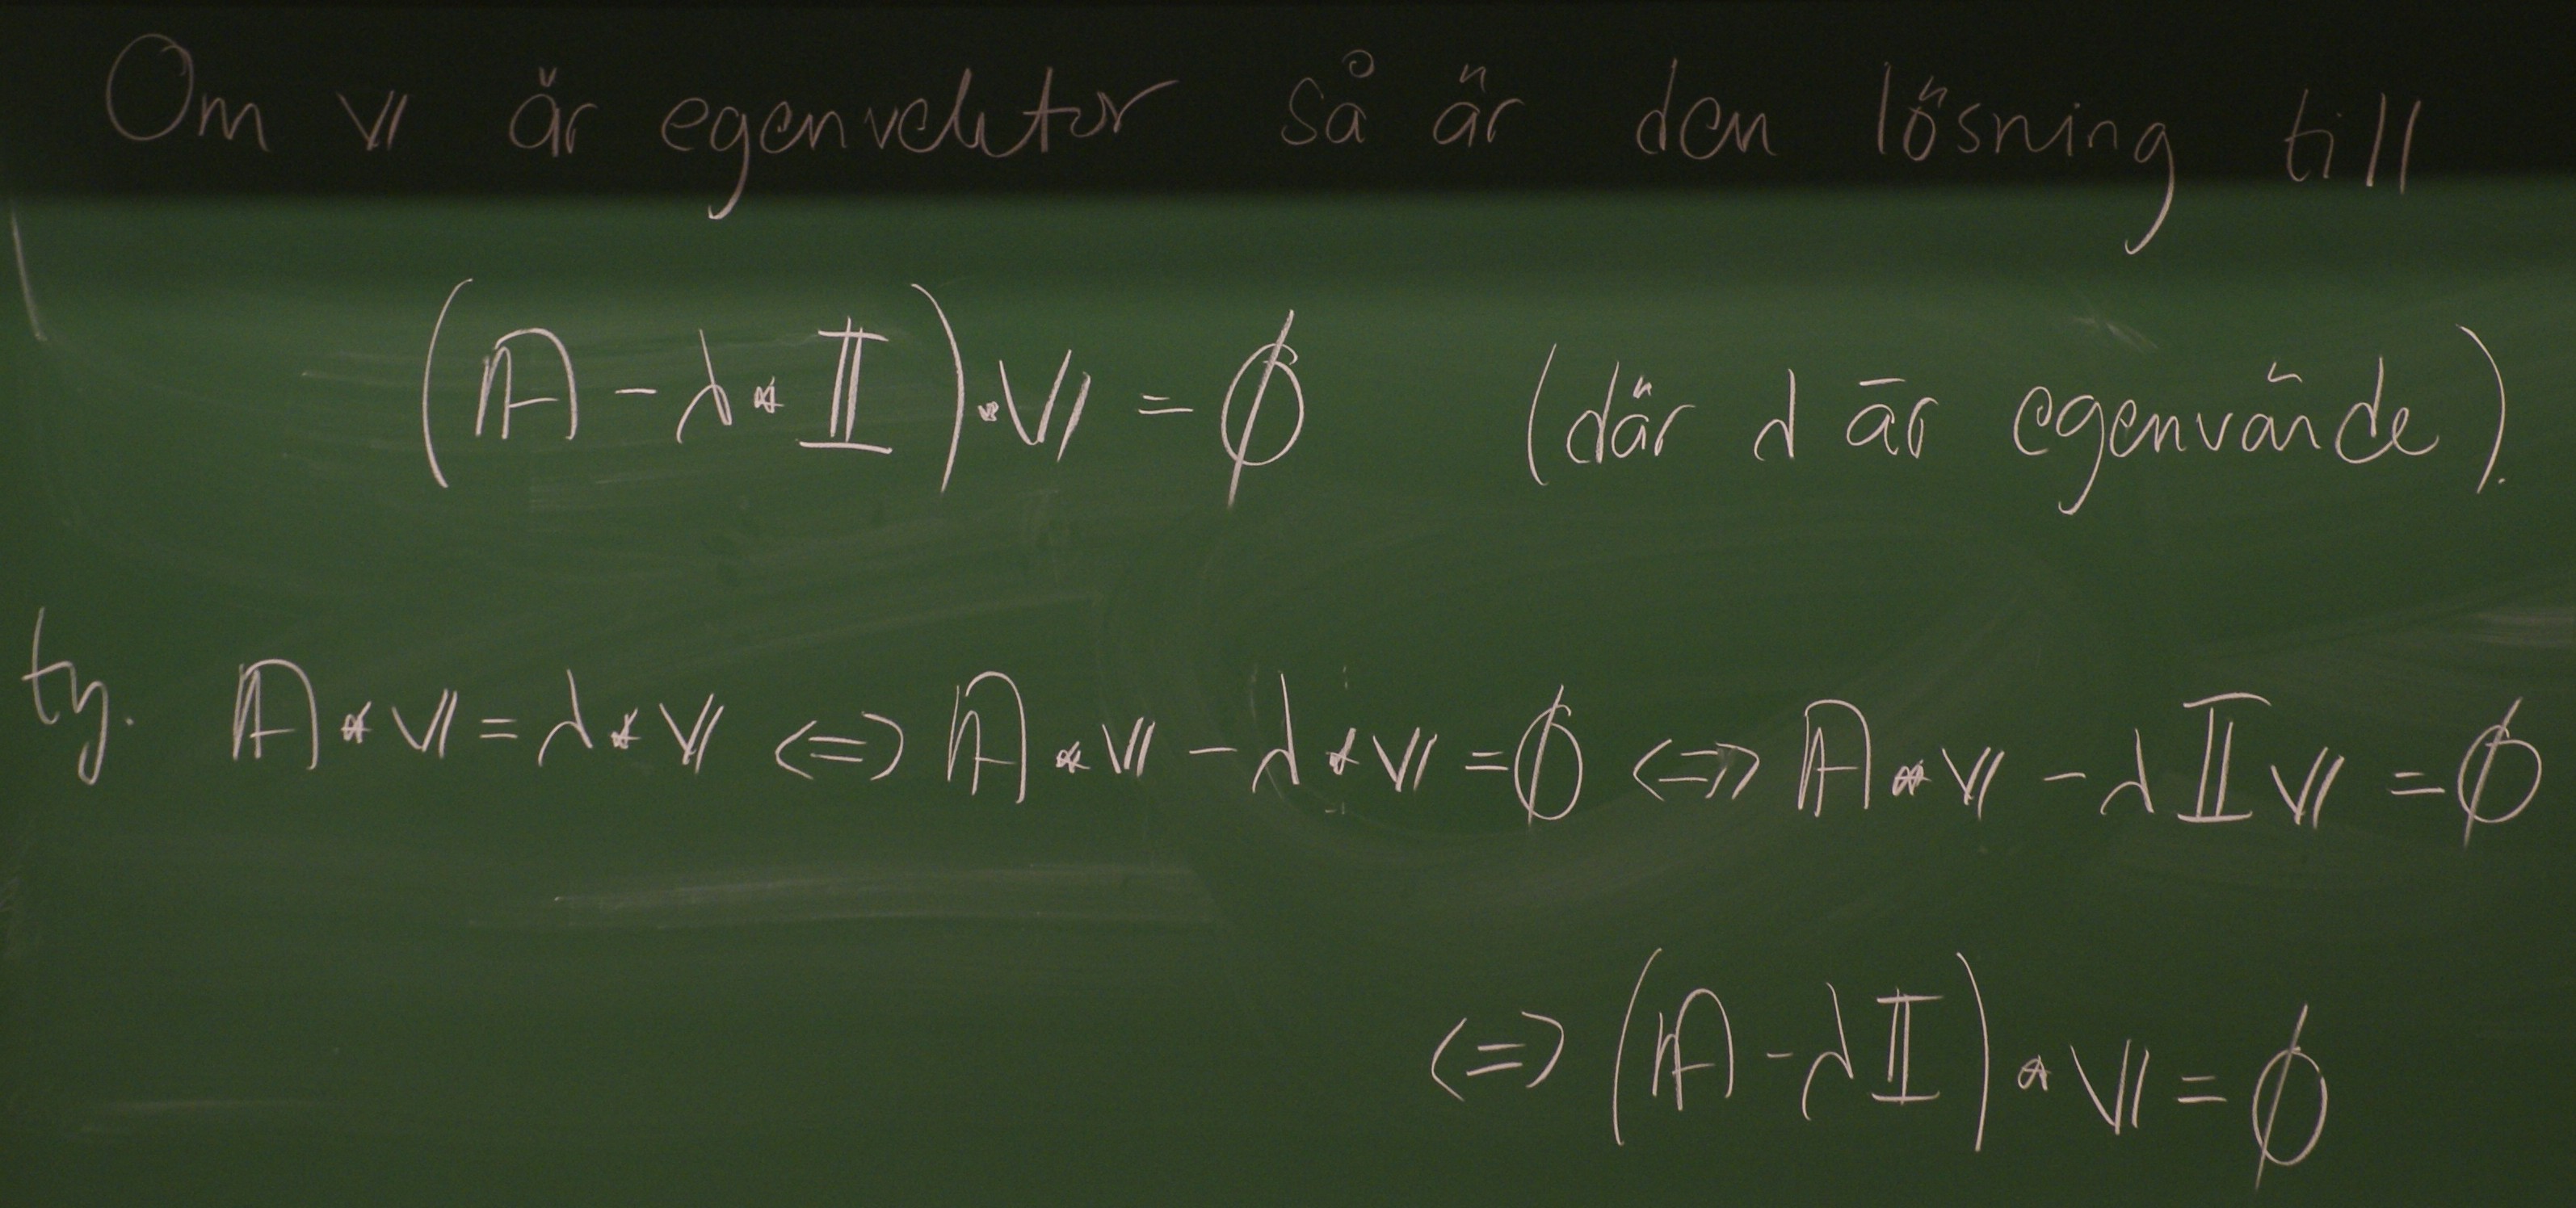 Om 𝕧 är egenvektor så är den lösning till
(𝔸 - λ * 𝕀) * 𝕧 = 0̸ (där λ är egenvärde).
ty. 𝔸 * 𝕧 = λ * 𝕧 <=> 𝔸 * 𝕧 - λ * 𝕧 = 0̸ <=> 𝔸 * 𝕧 - λ𝕀𝕧 = 0̸
<=> (𝔸 - λ𝕀) * 𝕧 = 0̸